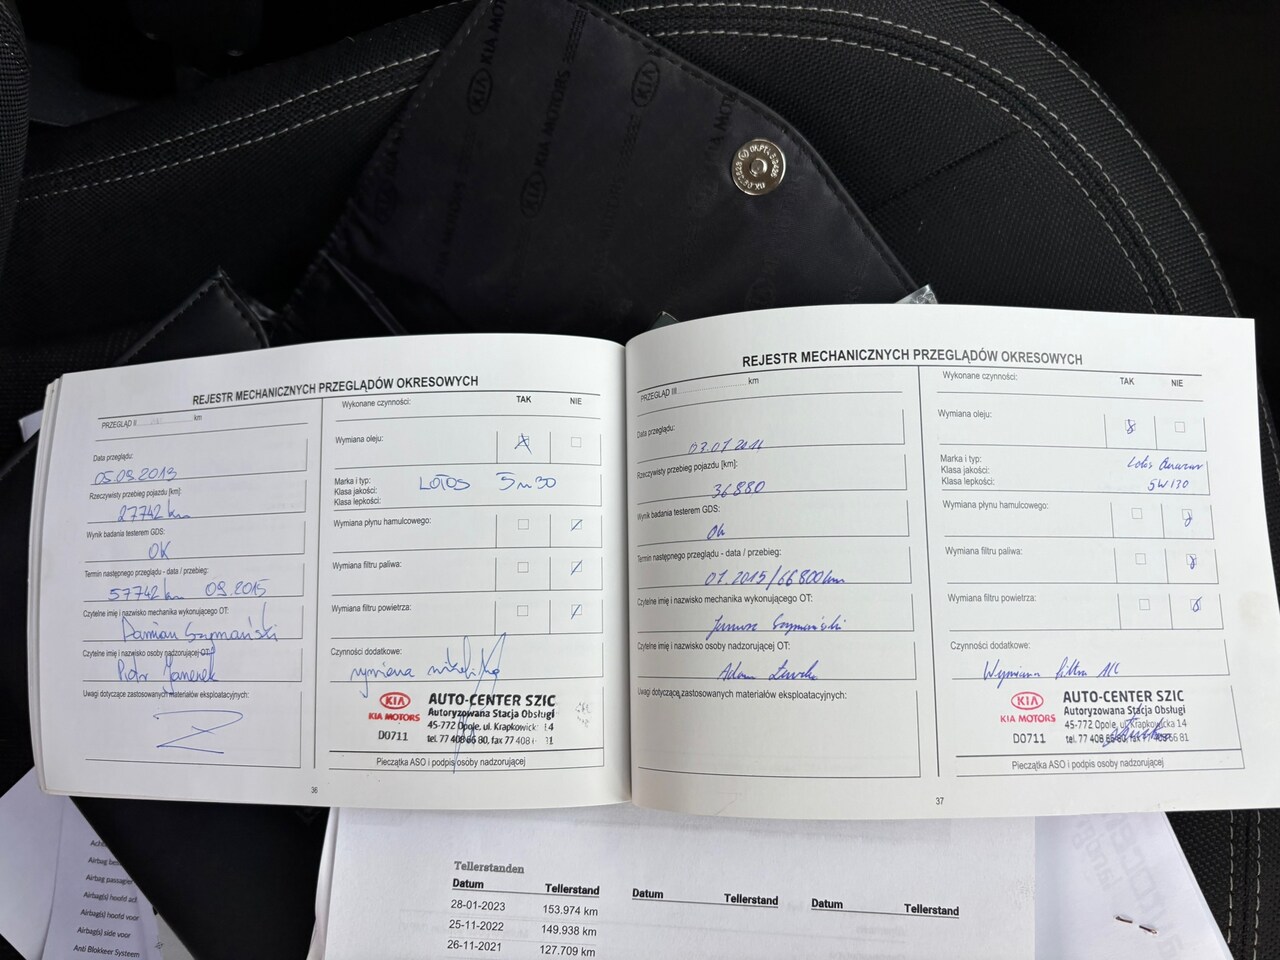 KIA MOTORS
KIA
REJESTR MECHANICZNYCH PRZEGLĄDÓW OKRESOWYCH
PRZEGLĄD II km
Data przeglądu:
05.09.2013
Rzeczywisty przebieg pojazdu [km]:
27742 km
Wynik badania testerem GDS:
OK
Termin następnego przeglądu - data / przebieg:
57742 km 09.2015
Czytelne imię i nazwisko mechanika wykonującego OT:
Damian Szymański
Czytelne imię i nazwisko osoby nadzorującej OT:
Piotr
Uwagi dotyczące zastosowanych materiałów eksploatacyjnych:
Wykonane czynności: TAK NIE
Wymiana oleju:
Marka i typ:
Klasa jakości:
Klasa lepkości:
LOTOS 5w30
Wymiana płynu hamulcowego:
Wymiana filtru paliwa:
Wymiana filtru powietrza:
Czynności dodatkowe:
wymiana
KIA
KIA MOTORS
D0711
AUTO-CENTER SZIC
Autoryzowana Stacja Obsługi
45-772 Opole, ul. Krapkowicka 14
tel. 77 408 66 80, fax 77 408
Pieczątka ASO i podpis osoby nadzorującej
36
REJESTR MECHANICZNYCH PRZEGLĄDÓW OKRESOWYCH
PRZEGLĄD III km
Data przeglądu:
03.07.2014
Rzeczywisty przebieg pojazdu [km]:
36880
Wynik badania testerem GDS:
Ok
Termin następnego przeglądu - data / przebieg:
07.2015/66800km
Czytelne imię i nazwisko mechanika wykonującego OT:
Janusz Szymański
Czytelne imię i nazwisko osoby nadzorującej OT:
Adam
Uwagi dotyczące zastosowanych materiałów eksploatacyjnych:
Wykonane czynności: TAK NIE
Wymiana oleju:
Marka i typ:
Klasa jakości:
Klasa lepkości:
Lotos
5W130
Wymiana płynu hamulcowego:
Wymiana filtru paliwa:
Wymiana filtru powietrza:
Czynności dodatkowe:
Wymiana filtra
KIA
KIA MOTORS
D0711
AUTO-CENTER SZIC
Autoryzowana Stacja Obsługi
45-772 Opole, ul. Krapkowicka 14
tel. 77 408 66 80, fax 77 408 66 81
Pieczątka ASO i podpis osoby nadzorującej
37
Tellerstanden
Datum Tellerstand Datum Tellerstand Datum Tellerstand
28-01-2023 153.974 km
25-11-2022 149.938 km
26-11-2021 127.709 km
Airbag passagier
Airbag(s) hoofd
Airbag(s) hoofd voor
Airbag(s) side voor
Anti Blokkeer Systeem